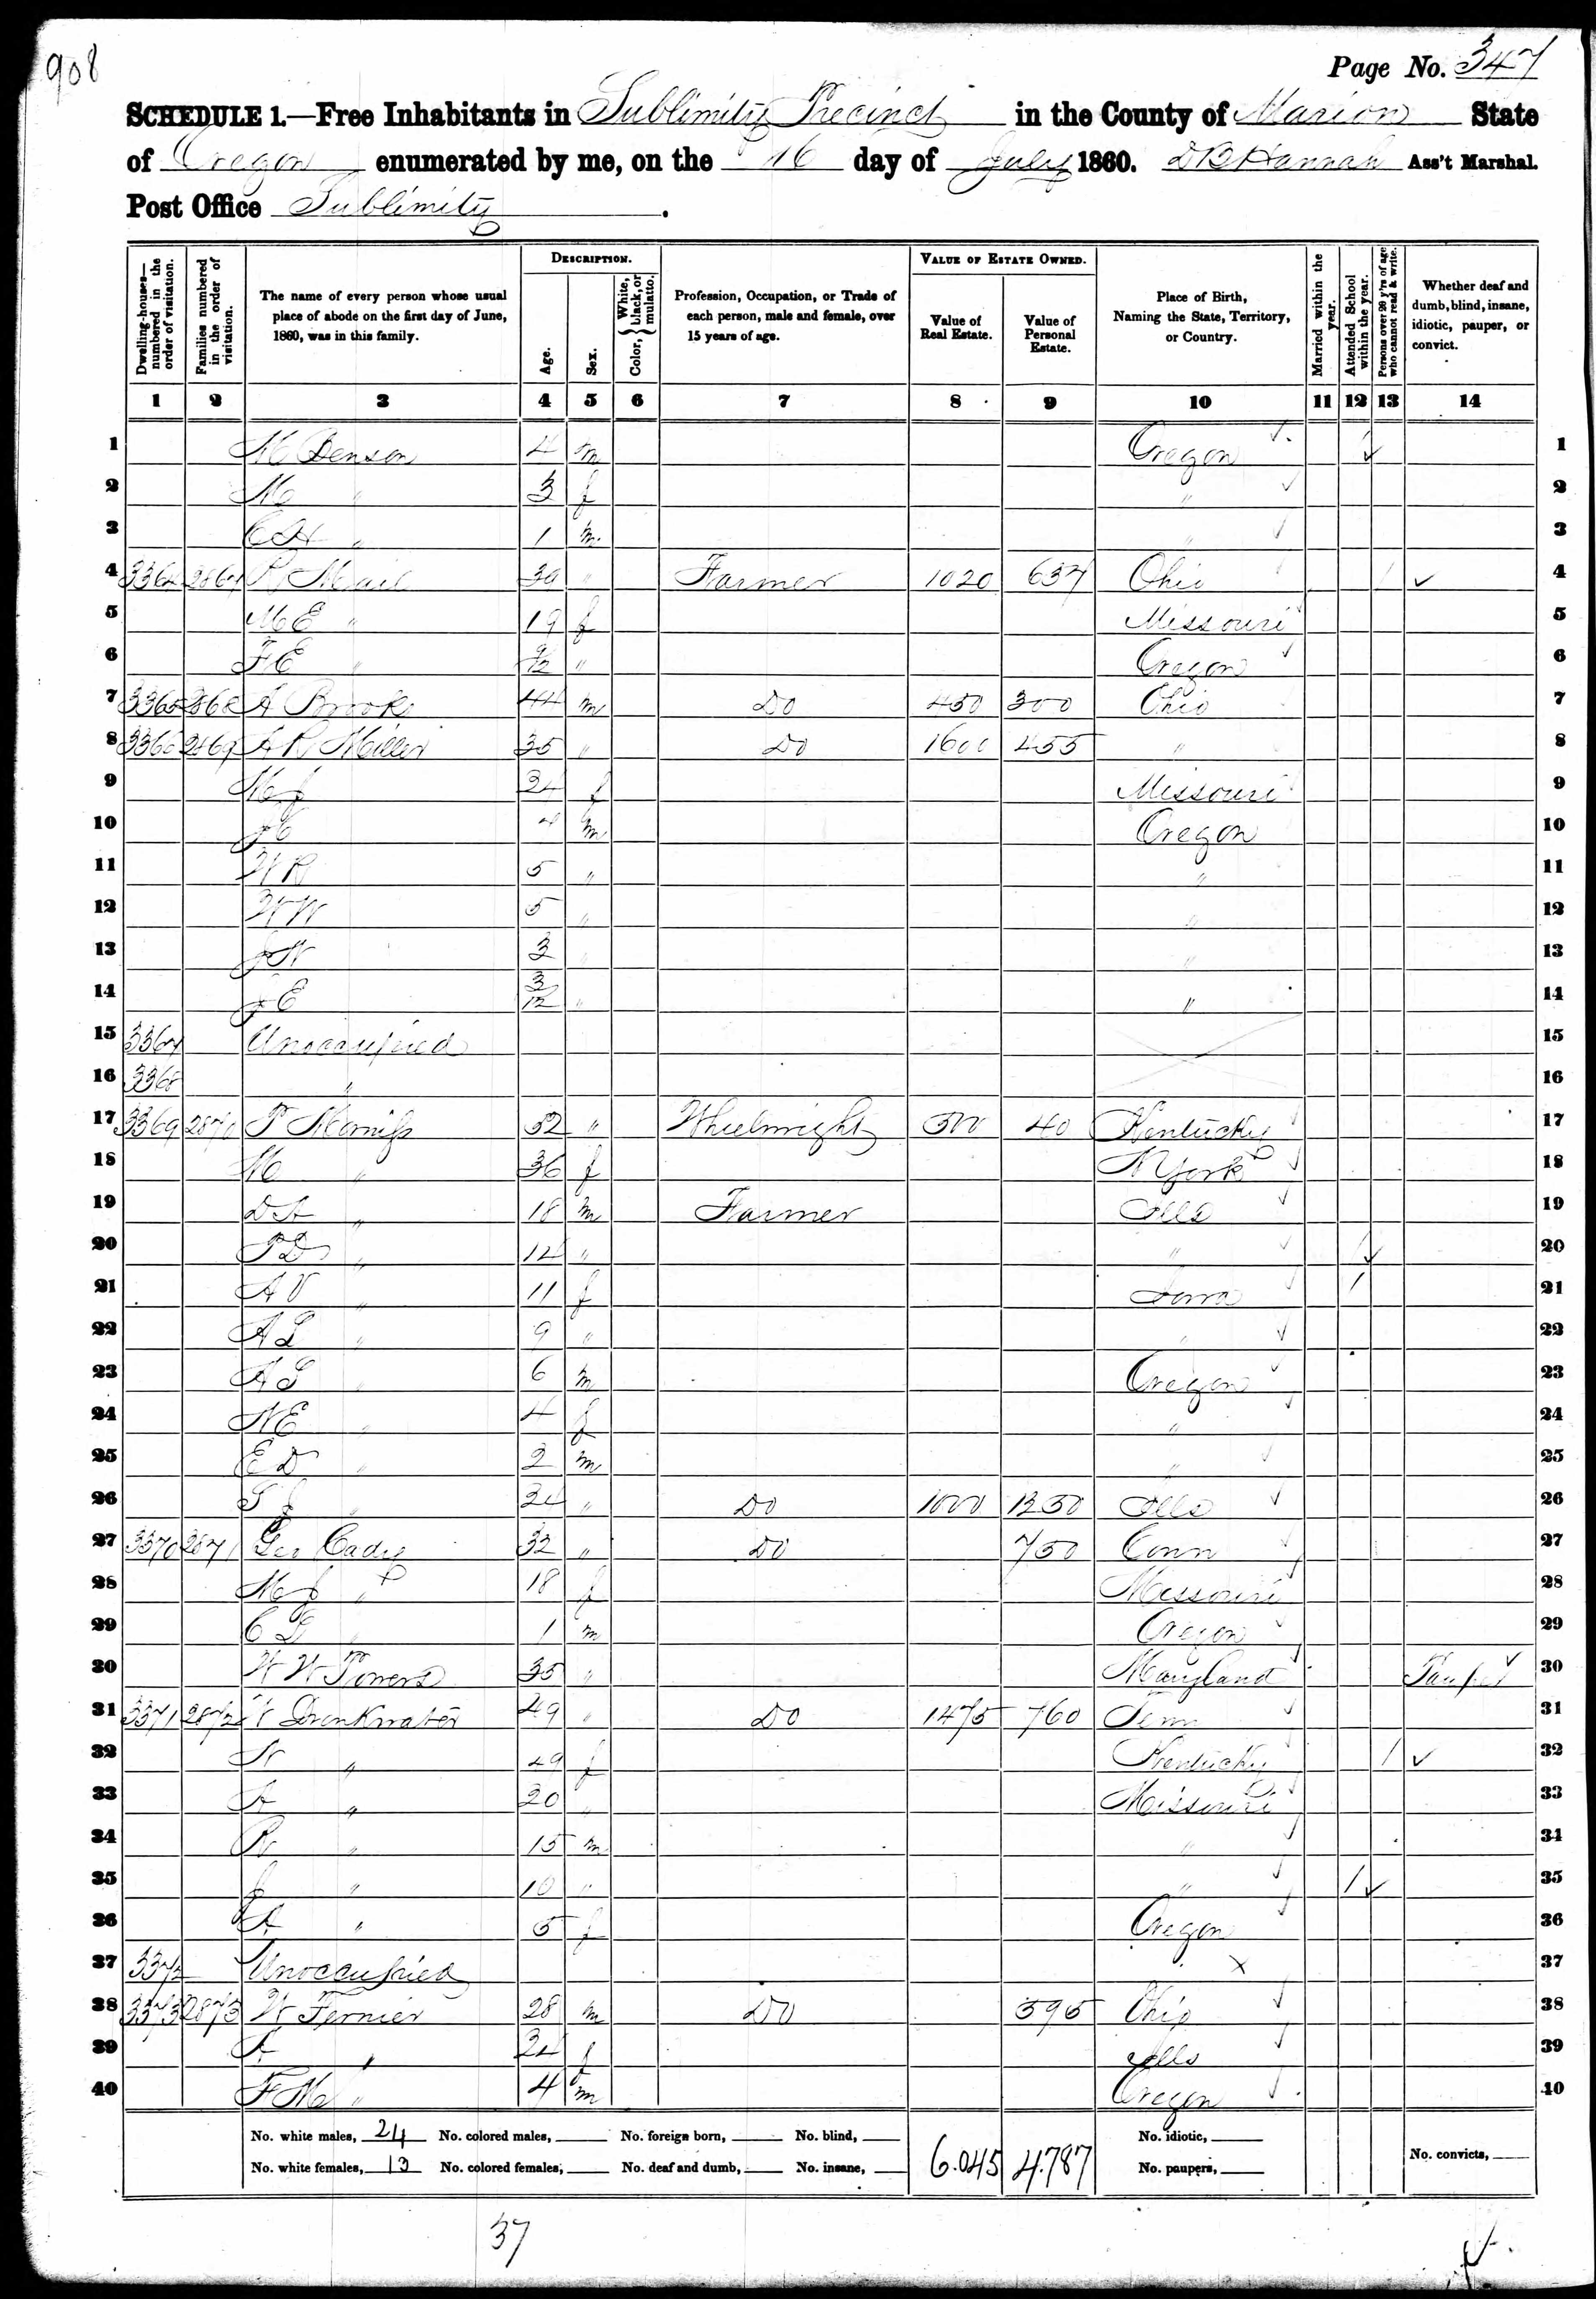 908
Page No. 347
SCHEDULE 1.—Free Inhabitants in Sublimity Precinct in the County of Marion State
of Oregon enumerated by me, on the 16 day of July 1860. D B Hannah Ass't Marshal.
Post Office Sublimity.
Dwelling-houses—numbered in the order of visitation. Families numbered in the order of visitation. The name of every person whose usual place of abode on the first day of June, 1860, was in this family. DESCRIPTION. Age. Sex. Color, { White, black, or mulatto. Profession, Occupation, or Trade of each person, male and female, over 15 years of age. VALUE OF ESTATE OWNED. Value of Real Estate. Value of Personal Estate. Place of Birth, Naming the State, Territory, or Country. Married within the year. Attended School within the year. Persons over 20 y'rs of age who cannot read & write. Whether deaf and dumb, blind, insane, idiotic, pauper, or convict.
1 2 3 4 5 6 7 8 9 10 11 12 13 14
1 M Benson 4 m Oregon 1
2 M " 3 f " 2
3 " 1 m " 3
4 3364 2867 Farmer 1020 637 Ohio 1 4
5 M E " 19 f Missouri 5
6 F E " 9/12 " Oregon 6
7 3365 2868 A Brooke 44 m Do 450 300 Ohio 7
8 3366 2869 A R Miller 35 " Do 1600 455 " 8
9 M J 24 f Missouri 9
10 m Oregon 10
11 W R 5 " " 11
12 W W 5 " " 12
13 3 " " 13
14 J E 3/12 " " 14
15 3367 Unoccupied 15
16 3368 " 16
17 3369 2870 52 " Wheelwright 500 40 Kentucky 17
18 M " 36 f N York 18
19 D A " 18 m Farmer Ills 19
20 T D " 14 " " 1 20
21 A V " 11 f Iowa 1 21
22 A L " 9 " " 22
23 A S " 6 m Oregon 23
24 N E " 4 f " 24
25 E D " 2 m " 25
26 " 24 " Do 1000 1250 Ills 26
27 3370 2871 Geo Cady 32 " Do 750 Conn 27
28 M J " 18 f Missouri 28
29 " 1 m Oregon 29
30 W W Powers 35 " Maryland Pauper 30
31 3371 2872 Drinkwater 49 " Do 1475 760 Tenn 31
32 " 49 f Kentucky 1 32
33 A " 20 " Missouri 33
34 R " 15 m " 34
35 J " 10 " " 1 35
36 A " 5 f Oregon 36
37 3372 Unoccupied × 37
38 3373 2873 W Fernier 28 m Do 595 Ohio 38
39 A " 24 f Ills 39
40 F M " 4 m Oregon 40
No. white males, 24 No. colored males, No. foreign born, No. blind, 6.045 4.787 No. idiotic,
No. white females, 13 No. colored females, No. deaf and dumb, No. insane, No. paupers, No. convicts,
37